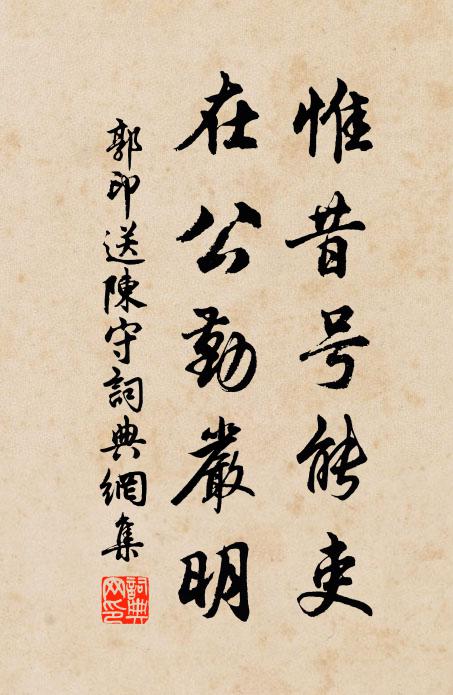 惟昔号能吏
在公勤嚴明
郭印送陳守詞典網集
詞典網印